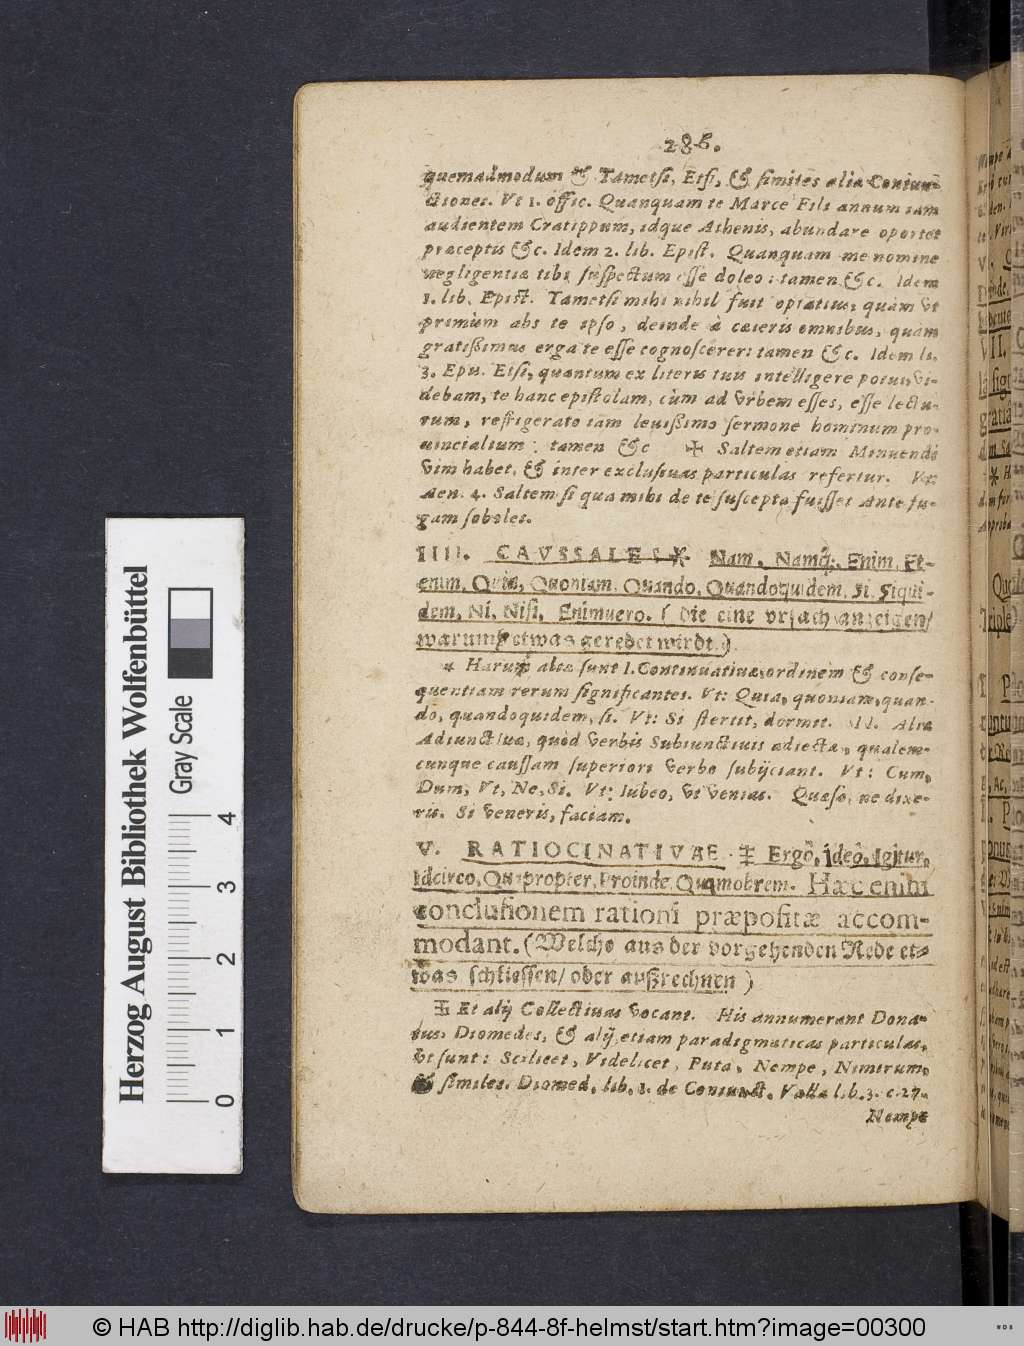 286.
quemadmodum & Tametsi, Etsi, & similes aliæ Coniun-
ctiones. Vt 1. offic. Quanquam te Marce Fili annum iam
audientem Cratippum, idque Athenis, abundare oportet
præceptis &c. Idem 2. lib. Epist. Quanquam me nomine
negligentiæ tibi suspectum esse doleo: tamen &c. Idem
1. lib. Epist. Tametsi mihi nihil fuit optatius, quàm vt
primùm abs te ipso, deinde à cæteris omnibus, quàm
gratißimus erga te esse cognoscerer: tamen &c. Idem li.
3. Epis. Etsi, quantum ex literis tuis intelligere potui, vi-
debam, te hanc epistolam, cùm ad vrbem esses, esse lectu-
rum, refrigerato iam leuißimo sermone hominum pro-
uincialium: tamen &c ✠ Saltem etiam Minuendi
vim habet, & inter exclusiuas particulas refertur. Vt:
Aen. 4. Saltem si qua mihi de te suscepta fuisset Ante fu-
gam soboles.
IIII. CAVSSALES * Nam, Namq;, Enim, Et-
enim, Quia, Quoniam, Quando, Quandoquidem, Si, Siqui-
dem, Ni, Nisi, Enimuero. ( die eine vrsach anzeigen/
warumb etwas geredet wirdt.)
* Harum aliæ sunt I. Continuatiuæ, ordinem & conse-
quentiam rerum significantes. Vt: Quia, quoniam, quan-
do, quandoquidem, si. Vt: Si stertit, dormit. II. Aliæ
Adiunctiuæ, quòd verbis Subiunctiuis adiectæ, qualem-
cunque caussam superiori verbo subijciant. Vt: Cum,
Dum, Vt, Ne, Si. Vt: Iubeo, vt venias. Quæso, ne dixe-
ris. Si veneris, faciam.
V. RATIOCINATIVAE ‡ Ergò, ideò, Igitur,
Idcirco, Quapropter, Proinde, Quamobrem. Hæc enim
conclusionem rationi præpositæ accom-
modant. (Welche aus der vorgehenden Rede et-
was schliessen/ oder außrechnen )
‡ Et alij Collectiuas vocant. His annumerant Dona-
tus, Diomedes, & alij, etiam paradigmaticas particulas,
vt sunt: Scilicet, Videlicet, Puta, Nempe, Nimirum,
& similes. Diomed. lib. 1. de Coniunct. Valla lib. 3. c. 27.
Nempe
Herzog August Bibliothek Wolfenbüttel
Gray Scale
0 1 2 3 4
© HAB http://diglib.hab.de/drucke/p-844-8f-helmst/start.htm?image=00300